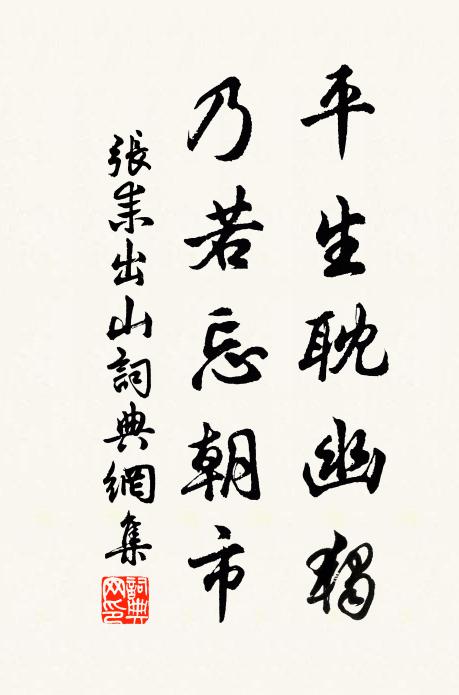 平生耽幽独
乃若忘朝市
張耒出山詞典網集
詞典网印